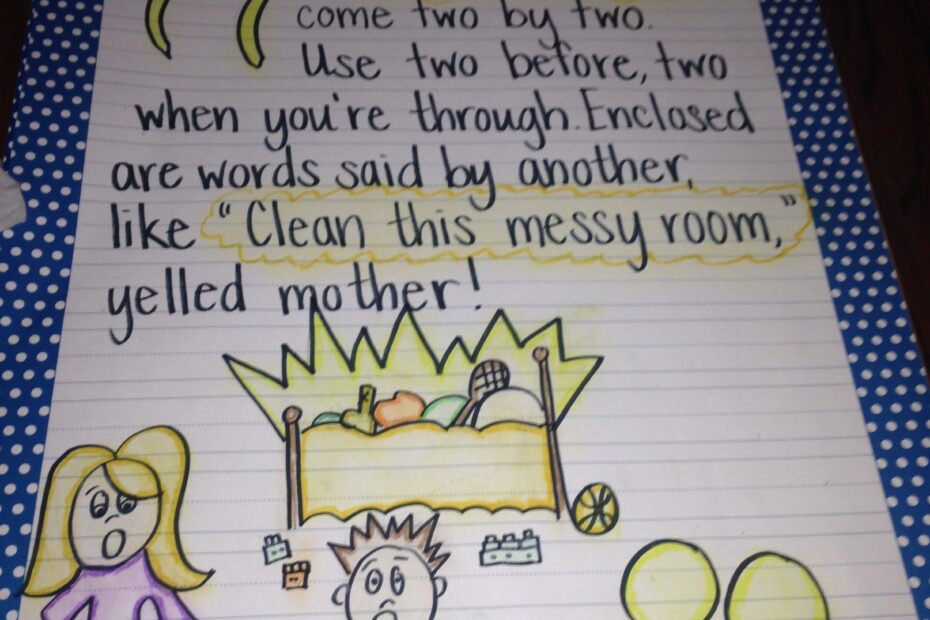 come two by two.
Use two before, two
when you're through. Enclosed
are words said by another,
like "Clean this messy room,"
yelled mother!